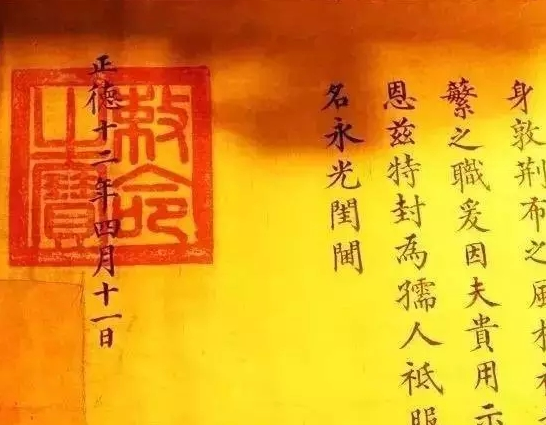 身敦荆布之風扵
蘩之職爰因夫貴用示
恩兹特封為孺人祗服
名永光閨閫
正德十二年四月十一日
敕命之寶